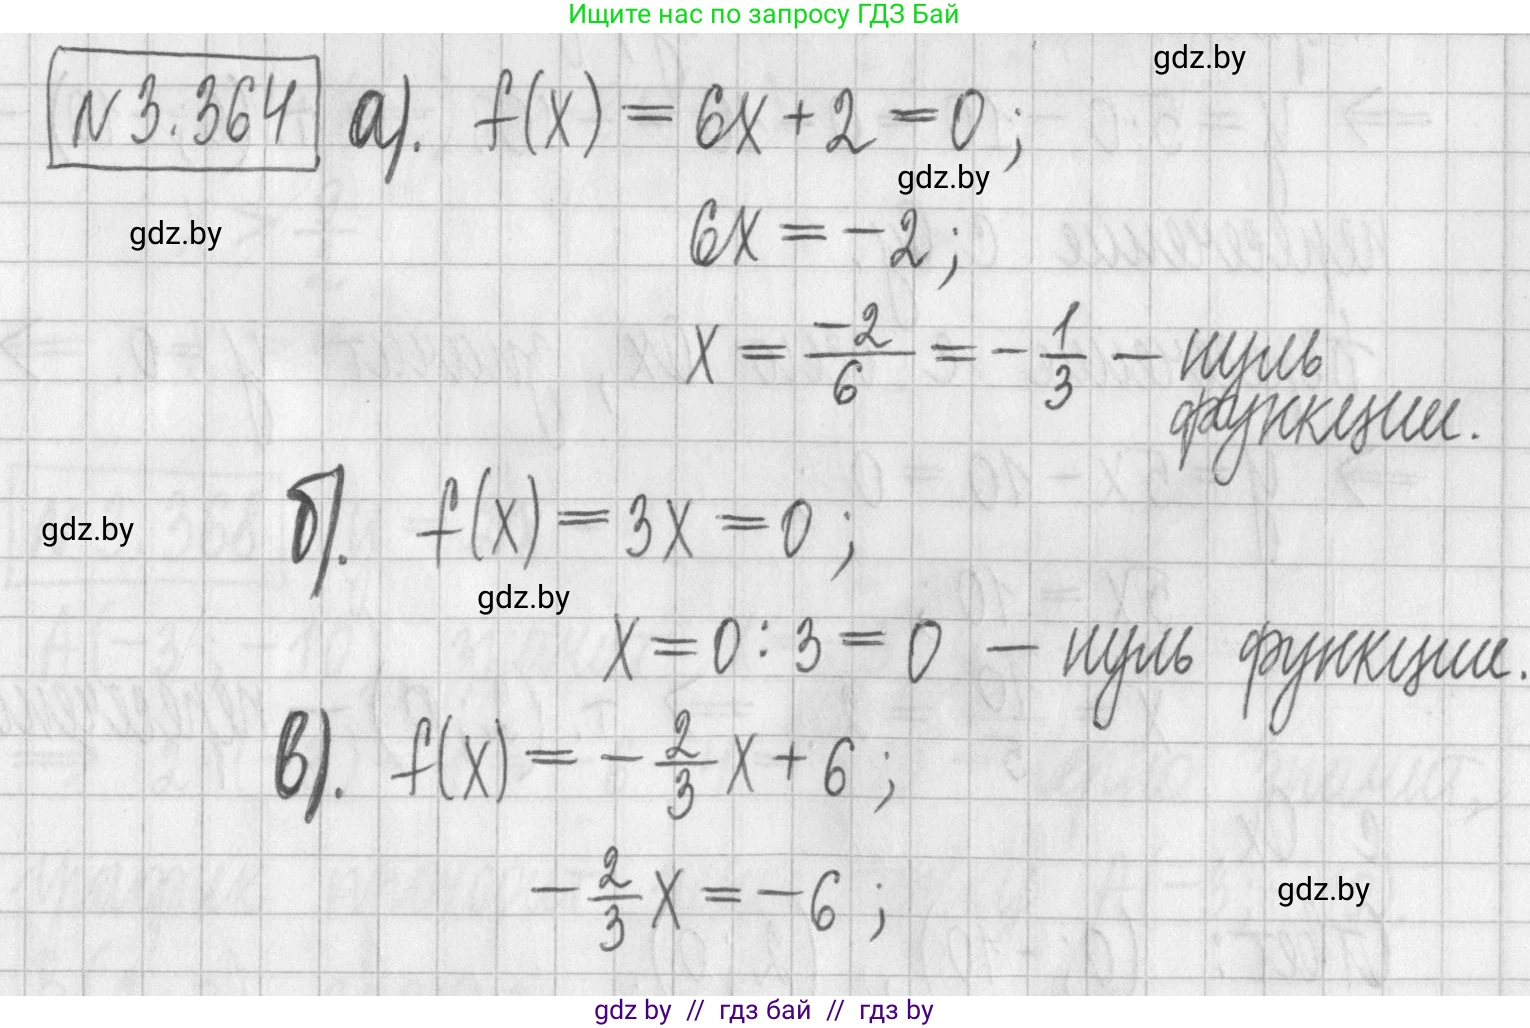 Ищите нас по запросу ГДЗ Бай
gdz.by
N 3.364 а). f(x) = 6x + 2 = 0;
gdz.by
gdz.by
6x = -2;
x = \frac{-2}{6} = -\frac{1}{3} — нуль
функции.
б). f(x) = 3x = 0;
gdz.by
gdz.by
x = 0 : 3 = 0 — нуль функции.
в). f(x) = -\frac{2}{3}x + 6;
-\frac{2}{3}x = -6;
gdz.by
gdz by // гдз бай // гдз by